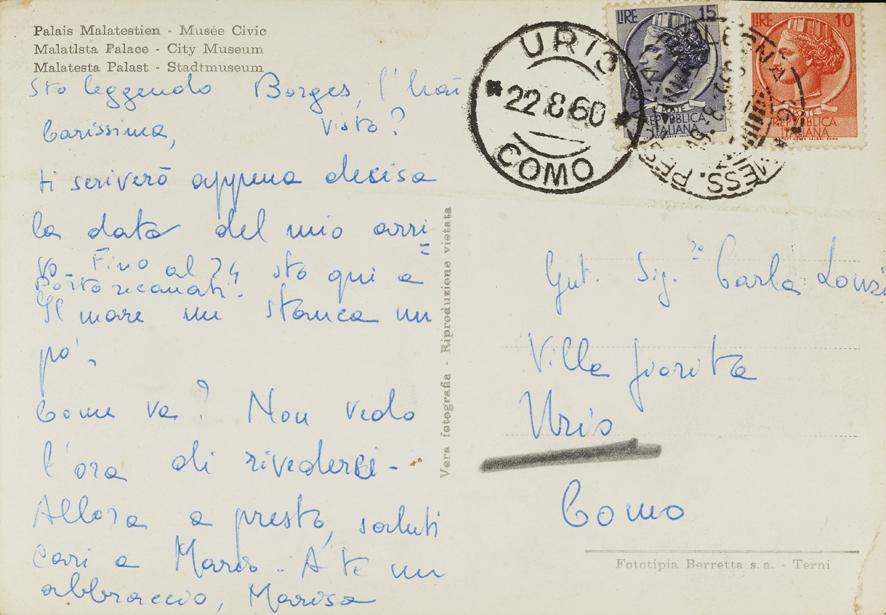 Palais Malatestien - Musée Civic
Malatista Palace - City Museum
Malatesta Palast - Stadtmuseum
Sto leggendo Borges, l'hai
visto?
Carissima,
ti scriverò appena decisa
la data del mio arri=
vo. Fino al 24 sto qui a
Portorecanati.
Il mare mi stanca un
po'.
Come va? Non vedo
l'ora di rivederci -
Allora a presto, saluti
cari a Mario - A te un
abbraccio, Marisa
Vera fotografia - Riproduzione vietata
URIO
22.8.60
COMO
LIRE 15
REPVBBLICA
ITALIANA
LIRE 10
REPVBBLICA
ITALIANA
MESS. PES
Gent. Sig.na Carla Lonzi
Villa Fiorita
Urio
Como
Fototipia Berretta s.a. - Terni